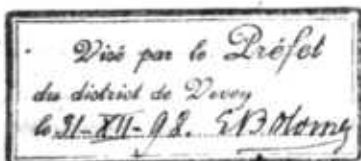 Visé par le Préfet
du district de Vevey
le 31-XII-98.